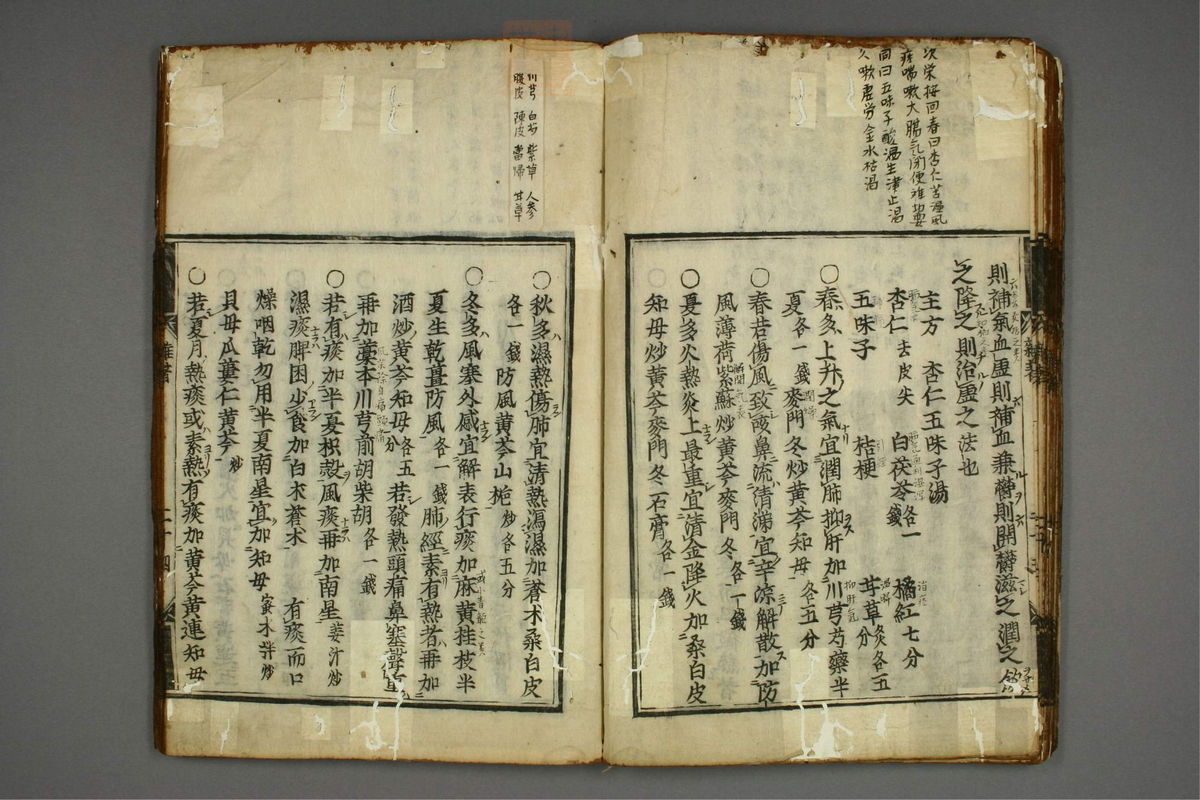 次栄按回春曰杏仁苦温風
痰喘嗽大腸氣閉便難切要
同曰五味子酸温生津止渇
久嗽虚労金水枯渇
則補氣血虚則補血兼鬱則開鬱滋之潤之斂
之降之則治虚之法也
主方 杏仁五味子湯
杏仁去皮尖 白茯苓各一錢 橘紅七分
五味子 桔梗 甘草炙各五分
○春多上升之氣宜潤肺抑肝加川芎芍藥半
夏各一錢麥門冬炒黄芩知母各五分
○春若傷風致咳鼻流清涕宜辛涼解散加防
風薄荷紫蘇炒黄芩麥門冬各一錢
○夏多火熱炎上最重宜清金降火加桑白皮
知母炒黄芩麥門冬石膏各一錢
川芎 白芍 紫草 人参
腹皮 陳皮 當帰 甘草
○秋多濕熱傷肺宜清熱瀉濕加蒼朮桑白皮
各一錢防風黄芩山梔炒各五分
○冬多風寒外感宜解表行痰加麻黄桂枝半
夏生乾薑防風各一錢肺經素有熱者再加
酒炒黄芩知母各五分若發熱頭痛鼻塞聲重
再加藁本川芎前胡柴胡各一錢
○若有痰加半夏枳殻風痰再加南星姜汁炒
濕痰脾困少食加白朮蒼朮 有痰而口
燥咽乾勿用半夏南星宜加知母蜜水拌炒
貝母瓜蔞仁黄芩炒
○若夏月熱痰或素熱有痰加黄芩黄連知母